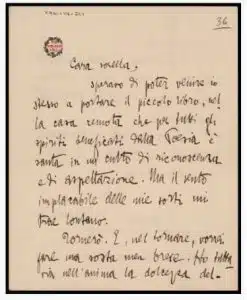 36
Cara sorella,
speravo di poter venire io
stesso a portare il piccolo libro, nel
la casa remota che per tutti gli
spiriti beneficati dalla Poesia è
santa in un culto di riconoscenza
e di aspettazione. Ma il vento
implacabile delle mie sorti mi
trae lontano.
Tornerò. E, nel tornare, vorrei
fare una sosta men breve. Ho tutta
via nell'anima la dolcezza del-